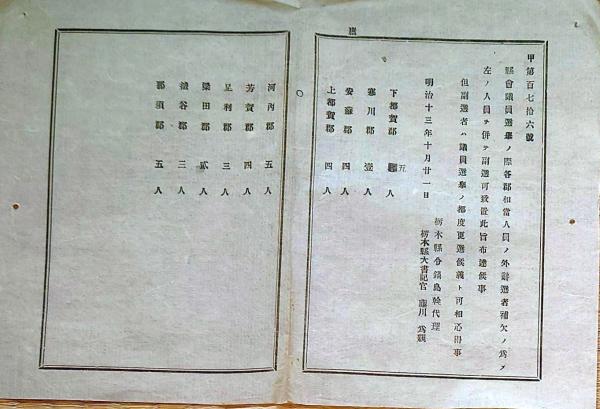 甲第百七拾六號
縣會議員選擧ノ際各郡相當人員ノ外辭選者補欠ノ爲メ
左ノ人員ヲ併テ副選可致置此旨布達候事
但副選者ハ議員選擧ノ都度更選候義ト可相心得事
明治十三年十月廿一日
栃木縣令鍋島幹代理
栃木縣大書記官 藤川爲親
下都賀郡 五人
寒川郡 壹人
安蘇郡 四人
上都賀郡 四人
河內郡 五人
芳賀郡 四人
足利郡 三人
梁田郡 貳人
鹽谷郡 三人
那須郡 五人